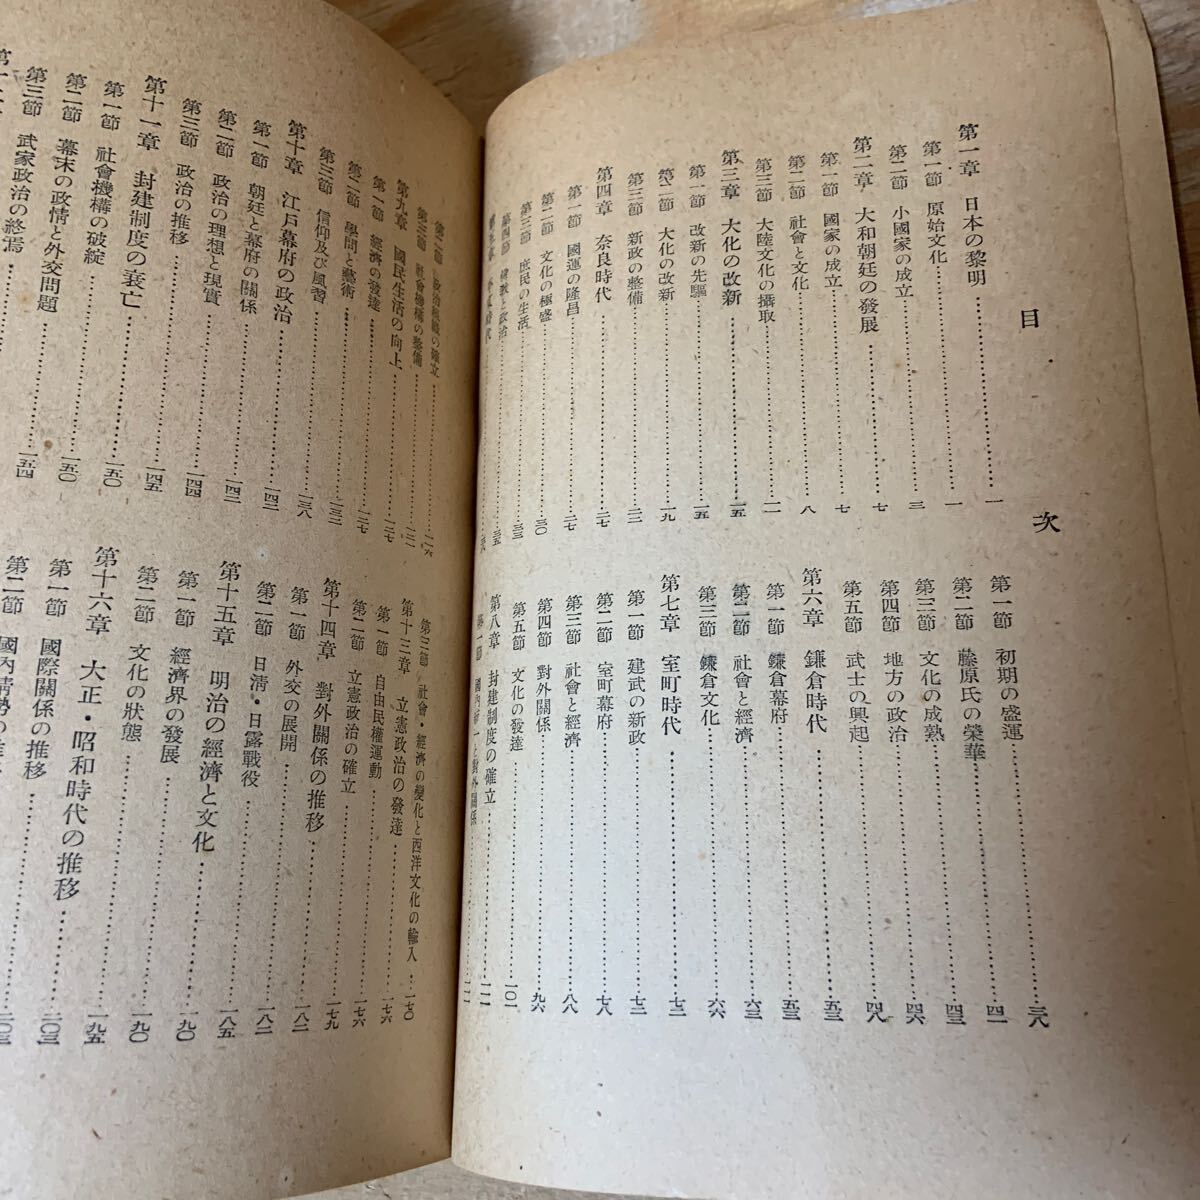 目次
第一章 日本の黎明……一
第一節 原始文化……一
第二節 小國家の成立……三
第二章 大和朝廷の發展……七
第一節 國家の成立……七
第二節 社會と文化……八
第三節 大陸文化の攝取……一一
第三章 大化の改新……一五
第一節 改新の先驅……一五
第二節 大化の改新……一九
第三節 新政の整備……二二
第四章 奈良時代……二七
第一節 國運の隆昌……二七
第二節 文化の極盛……三〇
第三節 庶民の生活……三三
第四節 佛教と政治……三五
第一節 初期の盛運……三八
第二節 藤原氏の榮華……四一
第三節 文化の成熟……四三
第四節 地方の政治……四六
第五節 武士の興起……四九
第六章 鎌倉時代……五三
第一節 鎌倉幕府……五三
第二節 社會と經濟……六三
第三節 鎌倉文化……六六
第七章 室町時代……七三
第一節 建武の新政……七三
第二節 室町幕府……七八
第三節 社會と經濟……八八
第四節 對外關係……九六
第五節 文化の發達……一〇一
第八章 封建制度の確立……一一一
第一節 國內統一と對外關係
第二節 政治組織の確立……一一六
第三節 社會機構の整備……一二一
第九章 國民生活の向上……一二七
第一節 經濟の發達……一二七
第二節 學問と藝術……一三二
第三節 信仰及び風習……一三八
第十章 江戶幕府の政治……一四二
第一節 朝廷と幕府の關係……一四二
第二節 政治の理想と現實……一四四
第三節 政治の推移……一四五
第十一章 封建制度の衰亡……一五〇
第一節 社會機構の破綻……一五〇
第二節 幕末の政情と外交問題……一五四
第三節 武家政治の終焉……
第三節 社會・經濟の變化と西洋文化の輸入……一七〇
第十三章 立憲政治の發達……一七六
第一節 自由民權運動……一七六
第二節 立憲政治の確立……一七九
第十四章 對外關係の推移……一八二
第一節 外交の展開……一八二
第二節 日淸・日露戰役……一八五
第十五章 明治の經濟と文化……一九〇
第一節 經濟界の發展……一九〇
第二節 文化の狀態……一九五
第十六章 大正・昭和時代の推移……二〇三
第一節 國際關係の推移……二〇三
第二節 國內情勢の